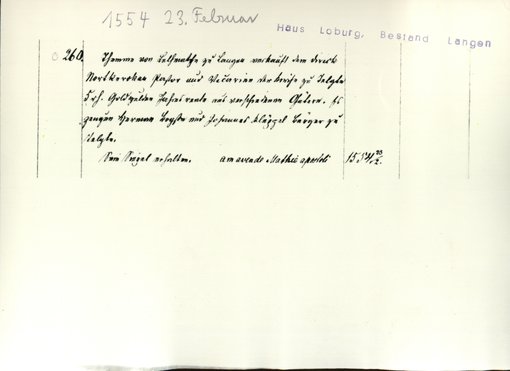 1554 23. Februar
Haus Loburg, Bestand Langen
260. Themmo von zu Langen verkauft dem Dirick
Nortkerken Pastor und Vicarien der Kirche zu Telgte
5 rh. Goldgulden Jahresrente aus verschiedenen Gütern. Es
zeugen Herman und Johannes Klüppel Bürger zu
Telgte.
Sein Siegel erhalten. am avende Mathie apostoli 1554 23/2.